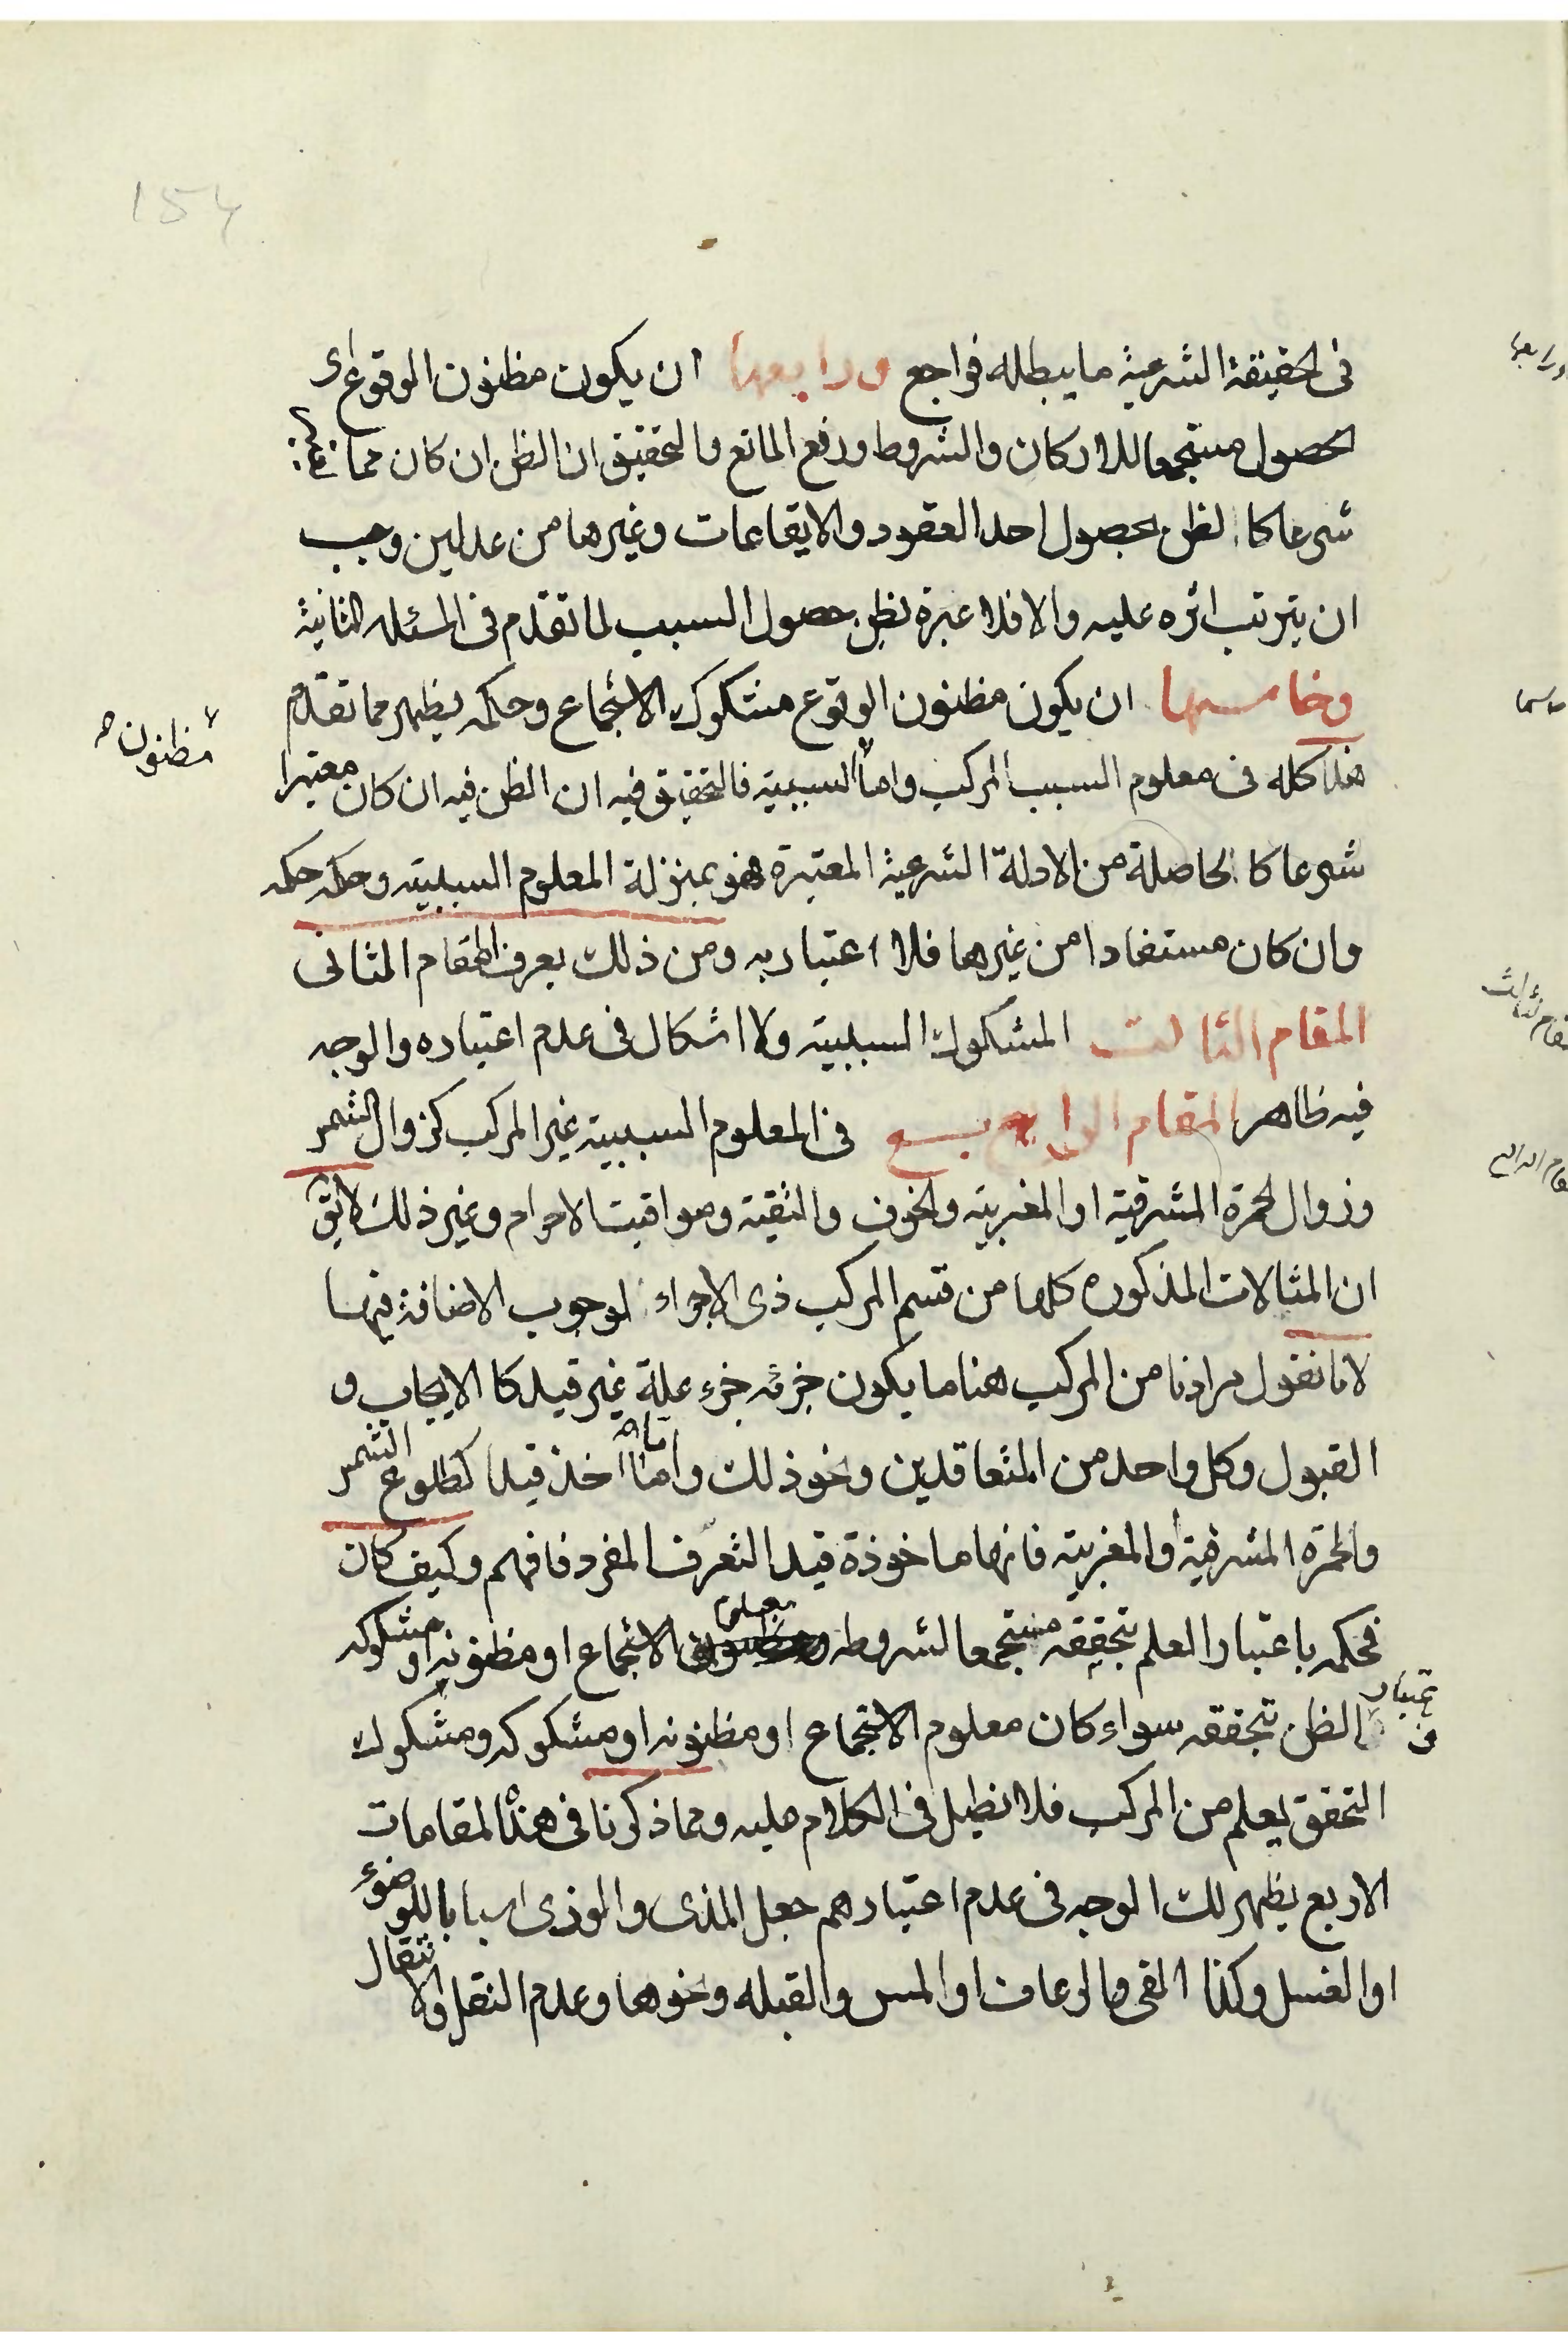 154
فى الحقيقة الشرعية ما يبطله فراجع ورابعها ان يكون مظنون الوقوع اى
الحصول مستجمعا للاركان والشروط ورفع المانع والتحقيق ان الظن ان كان مما
شرعا كا الظن بحصول احد العقود والايقاعات وغيرها من عدلين وجب
ان يترتب اثره عليه والا فلا عبرة بظن حصول السبب لما تقدم فى المسئله الثانية
وخامسها ان يكون مظنون الوقوع مشكوك الاجتماع وحكمه يظهر مما تقدم
هذا كله فى معلوم السبب المركب واما السببية فالتحقيق فيه ان الظن فيه ان كان معتبرا
مظنون
شرعا كا الحاصلة من الادلة الشرعية المعتبرة فهو بمنزلة المعلوم السببية وحكمه حكمه
وان كان مستفادا من غيرها فلا اعتبار به ومن ذلك يعرف المقام الثانى
المقام الثالث المشكوك السببية ولا اشكال فى عدم اعتباره والوجه
فيه ظاهر المقام الرابع فى المعلوم السببية غير المركب كزوال الشمس
وزوال الحمرة المشرقية او المغربية والخوف والتقية ومواقيت الاحرام وغير ذلك لا يق
ان المثالات المذكوره كلها من قسم المركب ذى الاجزاء لوجوب الاضافة فيها
لانا نقول مرادنا من المركب هنا ما يكون جزئه جزء علة غير قيد كا الايجاب و
القبول وكل واحد من المتعاقدين ونحو ذلك واما ما اخذ قيدا كطلوع الشمس
والحمرة المشرقية والمغربية فانها ماخوذة قيدا لتعرف المفرد فافهم وكيف كان
فحكمه باعتبار العلم بتحققه مستجمعا لشروطه معلوم الاجتماع او مظنونه او مشكوكه
و اعتبار الظن بتحققه سواء كان معلوم الاجتماع او مظنونه او مشكوكه ومشكوك
التحقق يعلم من المركب فلا نطيل فى الكلام عليه ومما ذكرنا فى هذه المقامات
الاربع يظهر لك الوجه فى عدم اعتبارهم جعل المذى والوذى اسبابا للوضوء
او الغسل وكذا القى والرعاف او المس والقبله ونحوها وعدم النقل والانتقال
ورابعها
المقام الثالث
المقام الرابع